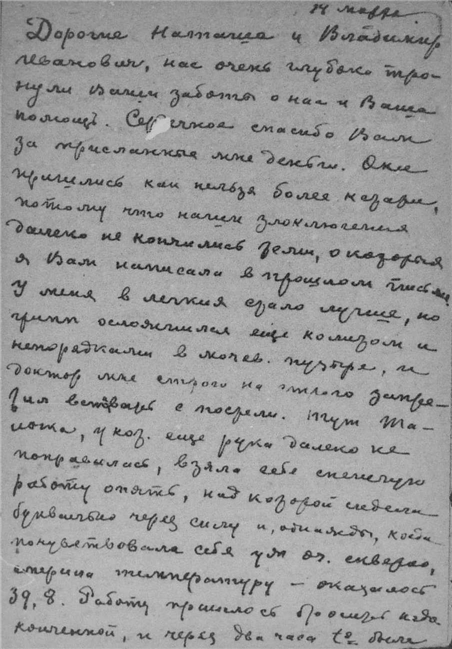 14 марта
Дорогие Наташа и Владимир
Иванович, нас очень глубоко тро-
нули Ваши заботы о нас и Ваша
помощь. Сердечное спасибо Вам
за присланные мне деньги. Они
пришлись как нельзя более кстати,
потому что наши злоключения
далеко не кончились теми, о которых
я Вам написала в прошлом письме
У меня в легких стало лучше, но
грипп осложнился еще колитом и
непорядками в мочев. пузыре, и
доктор мне строго на строго запре-
тил вставать с постели. Тут Та-
, у кот. еще рука далеко не
поправилась, взяла себе спешную
работу опять, над которой сидела
буквально через силу и, однажды, когда
почувствовала себя уж оч. скверно,
смерила температуру — оказалось
39,8. Работу пришлось бросить неза-
конченной, и через два часа t° была